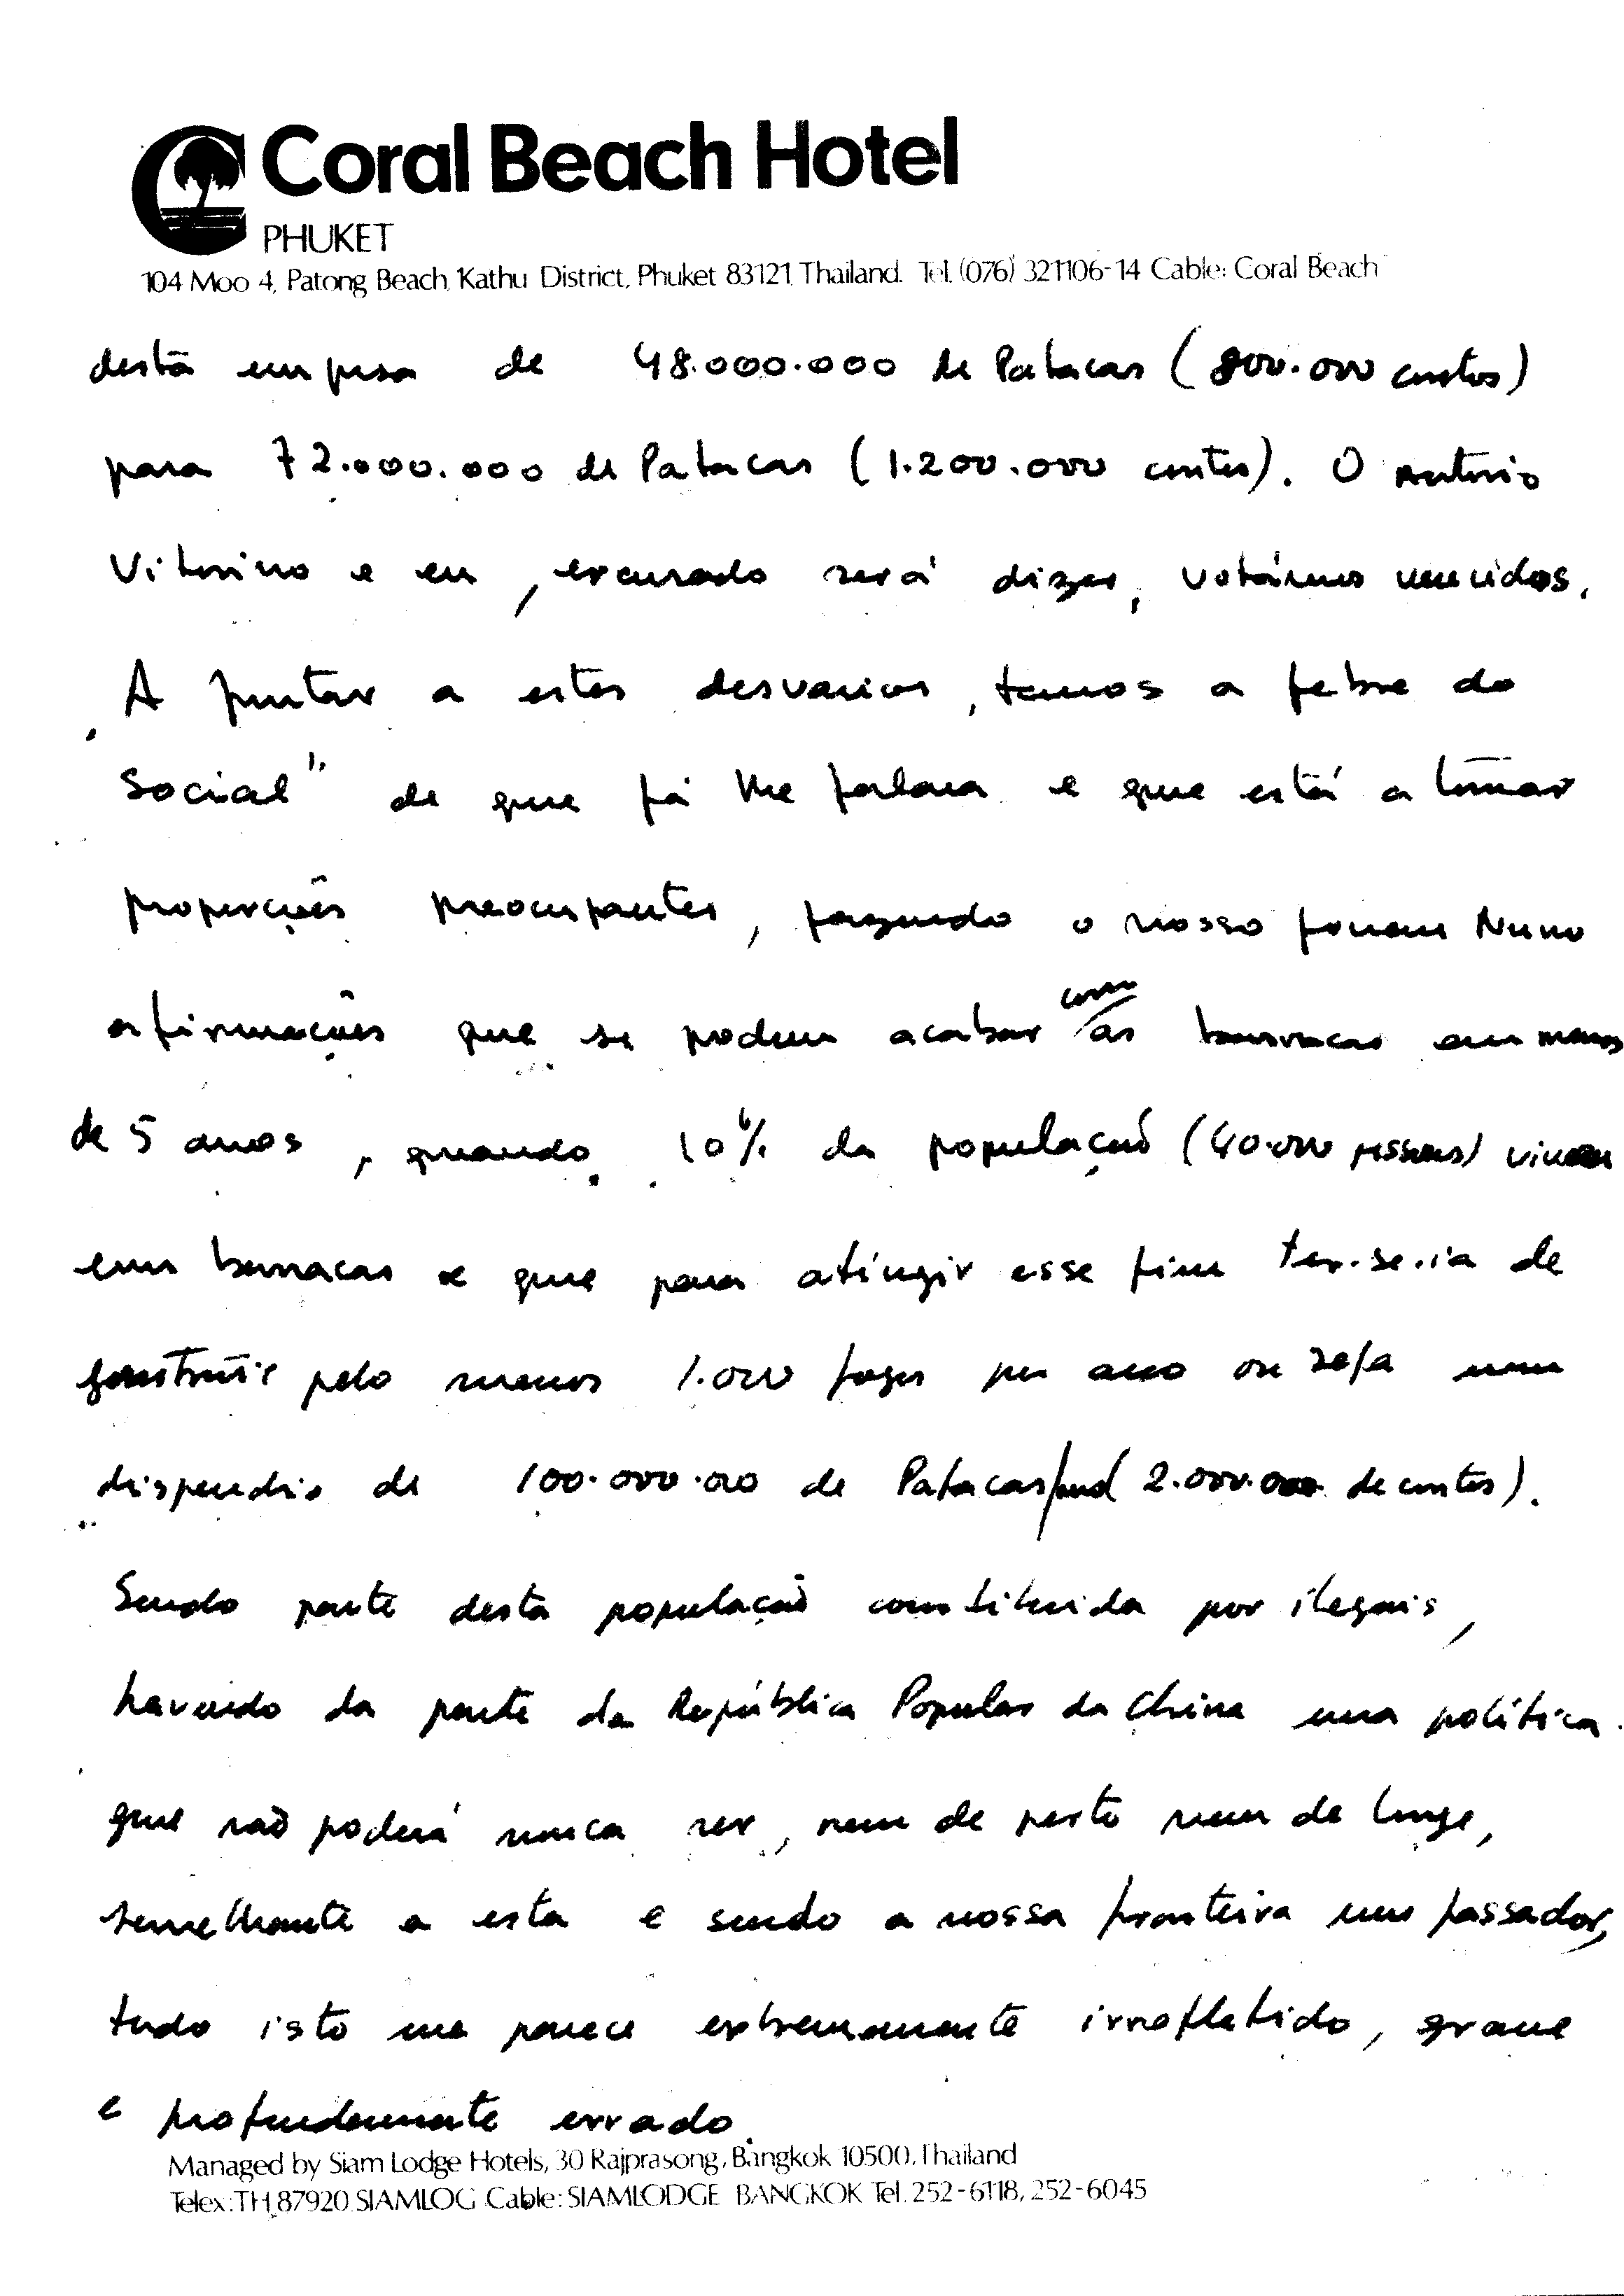 Coral Beach Hotel
PHUKET
104 Moo 4, Patong Beach, Kathu District, Phuket 83121 Thailand. Tel. (076) 321106-14 Cable: Coral Beach
desta empresa de 48.000.000 de Patacas (800.000 contos)
para 72.000.000 de Patacas (1.200.000 contos). O António
Vitorino e eu, escusado será dizer, votámos vencidos.
A juntar a estes desvarios, temos a febre do
social" de que já lhe falara e que está a tomar
proporções preocupantes, fazendo o nosso jovem Nuno
afirmações que se podem acabar com as barracas em menos
de 5 anos, quando 10% da população (40.000 pessoas) vivem
em barracas e que para atingir esse fim ter-se-ia de
construir pelo menos 1.000 fogos por ano ou seja um
dispendio de 100.000.000 de Patacas (2.000.000 de contos).
Sendo parte desta população constituida por ilegais,
havendo da parte da República Popular da China uma política
que não poderá nunca ser, nem de perto nem de longe,
semelhante a esta e sendo a nossa fronteira um passador,
tudo isto me parece extremamente irrefletido, grave
e profundamente errado.
Managed by Siam Lodge Hotels, 30 Rajprasong, Bangkok 10500, Thailand
Telex: TH 87920 SIAMLOG Cable: SIAMLODGE BANGKOK Tel. 252-6118, 252-6045